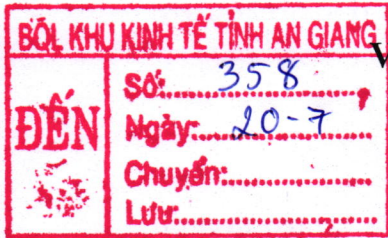 BQL KHU KINH TẾ TỈNH AN GIANG
ĐẾN
Số: 358
Ngày: 20-7
Chuyển:
Lưu: